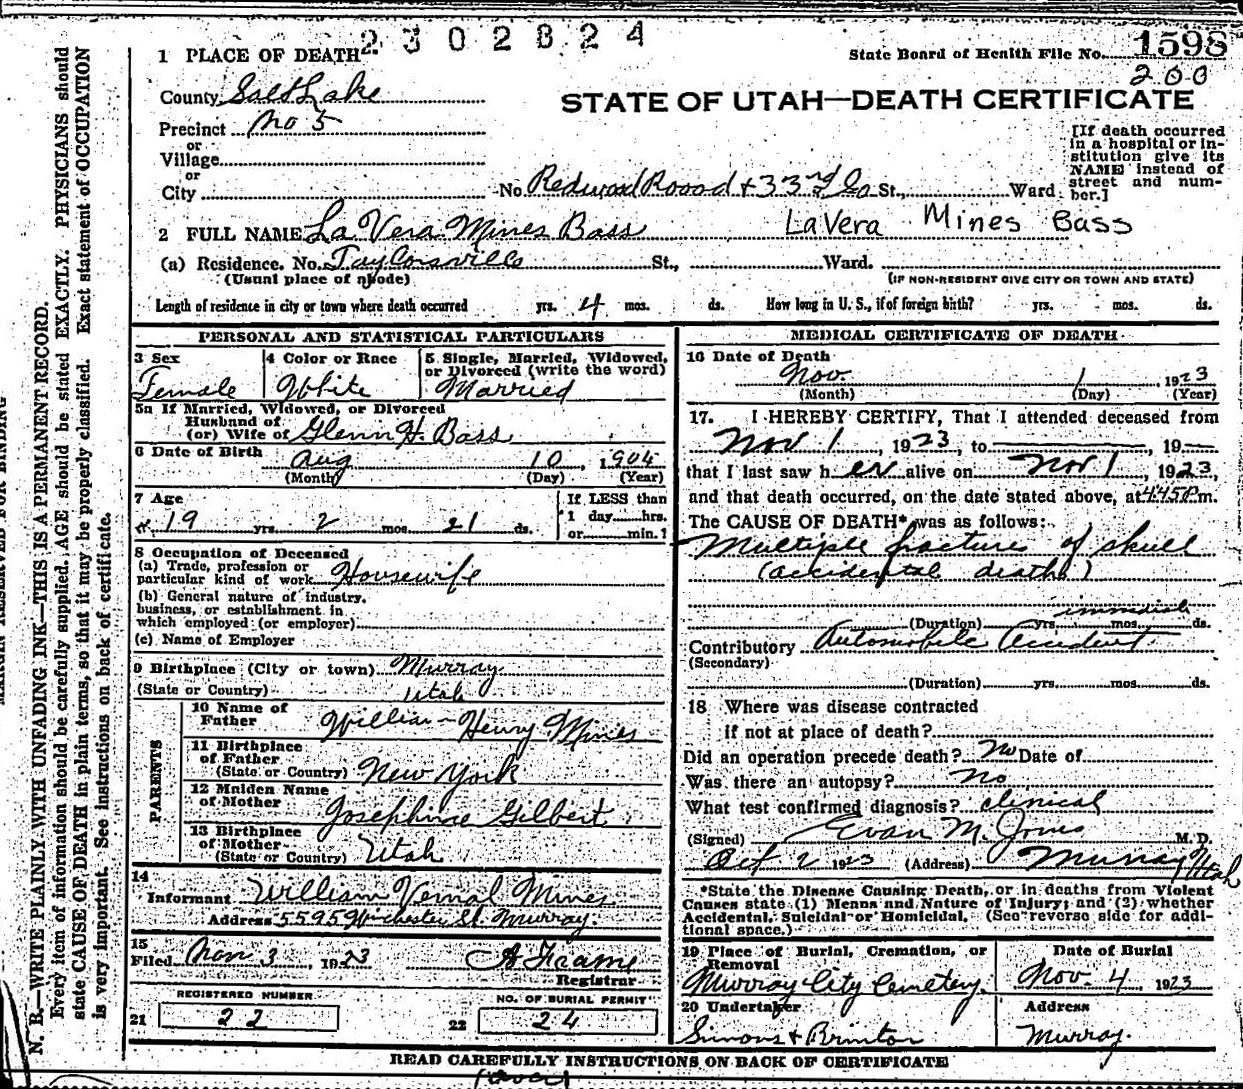 2302824
State Board of Health File No. 1598
200
1 PLACE OF DEATH
County Salt Lake
STATE OF UTAH—DEATH CERTIFICATE
Precinct No 5
or
Village
or
City
No. Redwood Roood + 33rd So St., Ward
[If death occurred
in a hospital or in-
stitution give its
NAME instead of
street and num-
ber.]
2 FULL NAME La Vera Mines Bass LaVera Mines Bass
(a) Residence. No. Taylorsville St., Ward.
(Usual place of abode) (IF NON-RESIDENT GIVE CITY OR TOWN AND STATE)
Length of residence in city or town where death occurred yrs. 4 mos. ds. How long in U. S., if of foreign birth? yrs. mos. ds.
PERSONAL AND STATISTICAL PARTICULARS
3 Sex
Female
4 Color or Race
White
5 Single, Married, Widowed,
or Divorced (write the word)
Married
5a If Married, Widowed, or Divorced
Husband of
(or) Wife of Glenn H. Bass
6 Date of Birth Aug 10, 1904
(Month) (Day) (Year)
7 Age
19 yrs. 2 mos. 21 ds.
If LESS than
1 day hrs.
or min.?
8 Occupation of Deceased
(a) Trade, profession or
particular kind of work Housewife
(b) General nature of industry,
business, or establishment in
which employed (or employer)
(c) Name of Employer
9 Birthplace (City or town) Murray
(State or Country) Utah
PARENTS
10 Name of
Father William Henry Mines
11 Birthplace
of Father
(State or Country) New York
12 Maiden Name
of Mother Josephine Gilbert
13 Birthplace
of Mother
(State or Country) Utah
14
Informant William Vernal Mines
Address 5595 Winchester St. Murray.
15
Filed Nov 3, 1923
Registrar
REGISTERED NUMBER
21 22
NO. OF BURIAL PERMIT
22 24
MEDICAL CERTIFICATE OF DEATH
16 Date of Death
Nov. 1 1923
(Month) (Day) (Year)
17. I HEREBY CERTIFY, That I attended deceased from
Nov 1, 1923, to 19
that I last saw h er alive on Nov 1, 1923,
and that death occurred, on the date stated above, at 4:45 P m.
The CAUSE OF DEATH* was as follows:
Multiple fracture of skull
(accidental death)
immediate
(Duration) yrs. mos. ds.
Contributory Automobile accident
(Secondary)
(Duration) yrs. mos. ds.
18 Where was disease contracted
if not at place of death?
Did an operation precede death? No Date of
Was there an autopsy? no
What test confirmed diagnosis? clinical
(Signed) Evan M. Jones M. D.
Oct 2 1923 (Address) Murray Utah
*State the Disease Causing Death, or in deaths from Violent
Causes state (1) Means and Nature of Injury; and (2) whether
Accidental, Suicidal or Homicidal. (See reverse side for addi-
tional space.)
19 Place of Burial, Cremation, or
Removal
Murray City Cemetery.
Date of Burial
Nov. 4 1923
20 Undertaker
Address
Murray.
READ CAREFULLY INSTRUCTIONS ON BACK OF CERTIFICATE
(over)
MARGIN RESERVED FOR BINDING
N. B.—WRITE PLAINLY WITH UNFADING INK—THIS IS A PERMANENT RECORD.
Every item of information should be carefully supplied. AGE should be stated EXACTLY. PHYSICIANS should
state CAUSE OF DEATH in plain terms, so that it may be properly classified. Exact statement of OCCUPATION
is very important. See instructions on back of certificate.